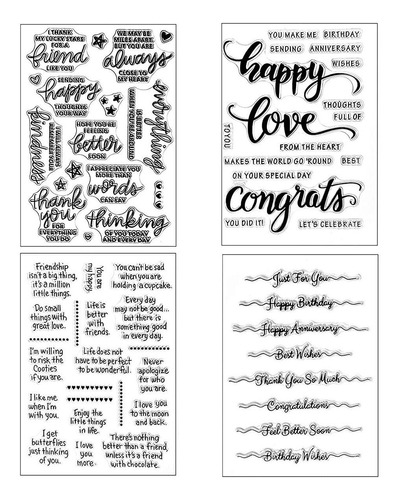 I THANK
MY LUCKY STARS
FOR A
friend
LIKE YOU
WE MAY BE
MILES APART
BUT YOU ARE
always
CLOSE TO
MY HEART
SENDING
happy
THOUGHTS
YOUR WAY
kindness
HOPE YOU'RE
FEELING
better
SOON
everything
IS BETTER
WHEN YOU'RE AROUND
I APPRECIATE YOU
MORE THAN
words
CAN SAY
thank
you
FOR
EVERYTHING
YOU DO
thinking
OF YOU TODAY
AND EVERY DAY
YOU MAKE ME BIRTHDAY
SENDING ANNIVERSARY
happy WISHES
THOUGHTS
love FULL OF
TO YOU
FROM THE HEART
MAKES THE WORLD GO 'ROUND BEST
ON YOUR SPECIAL DAY
Congrats
YOU DID IT! LET'S CELEBRATE
Friendship
isn't a big thing,
it's a million
little things.
You are
my happy.
You can't be sad
when you are
holding a cupcake.
Do small
things with
great love.
Life is
better
with
friends.
Every day
may not be good...
but there is
something good
in every day.
I'm willing
to risk the
Cooties
if you are.
Life does not
have to be perfect
to be wonderful.
Never
apologize
for who
you are.
I like me
when I'm
with you.
Enjoy the
little things
in life.
I love you
to the moon
and back.
I get
butterflies
just thinking
of you.
I love
you
more.
There's nothing
better than a friend,
unless it's a friend
with chocolate.
Just For You
Happy Birthday
Happy Anniversary
Best Wishes
Thank You So Much
Congratulations
Feel Better Soon
Birthday Wishes